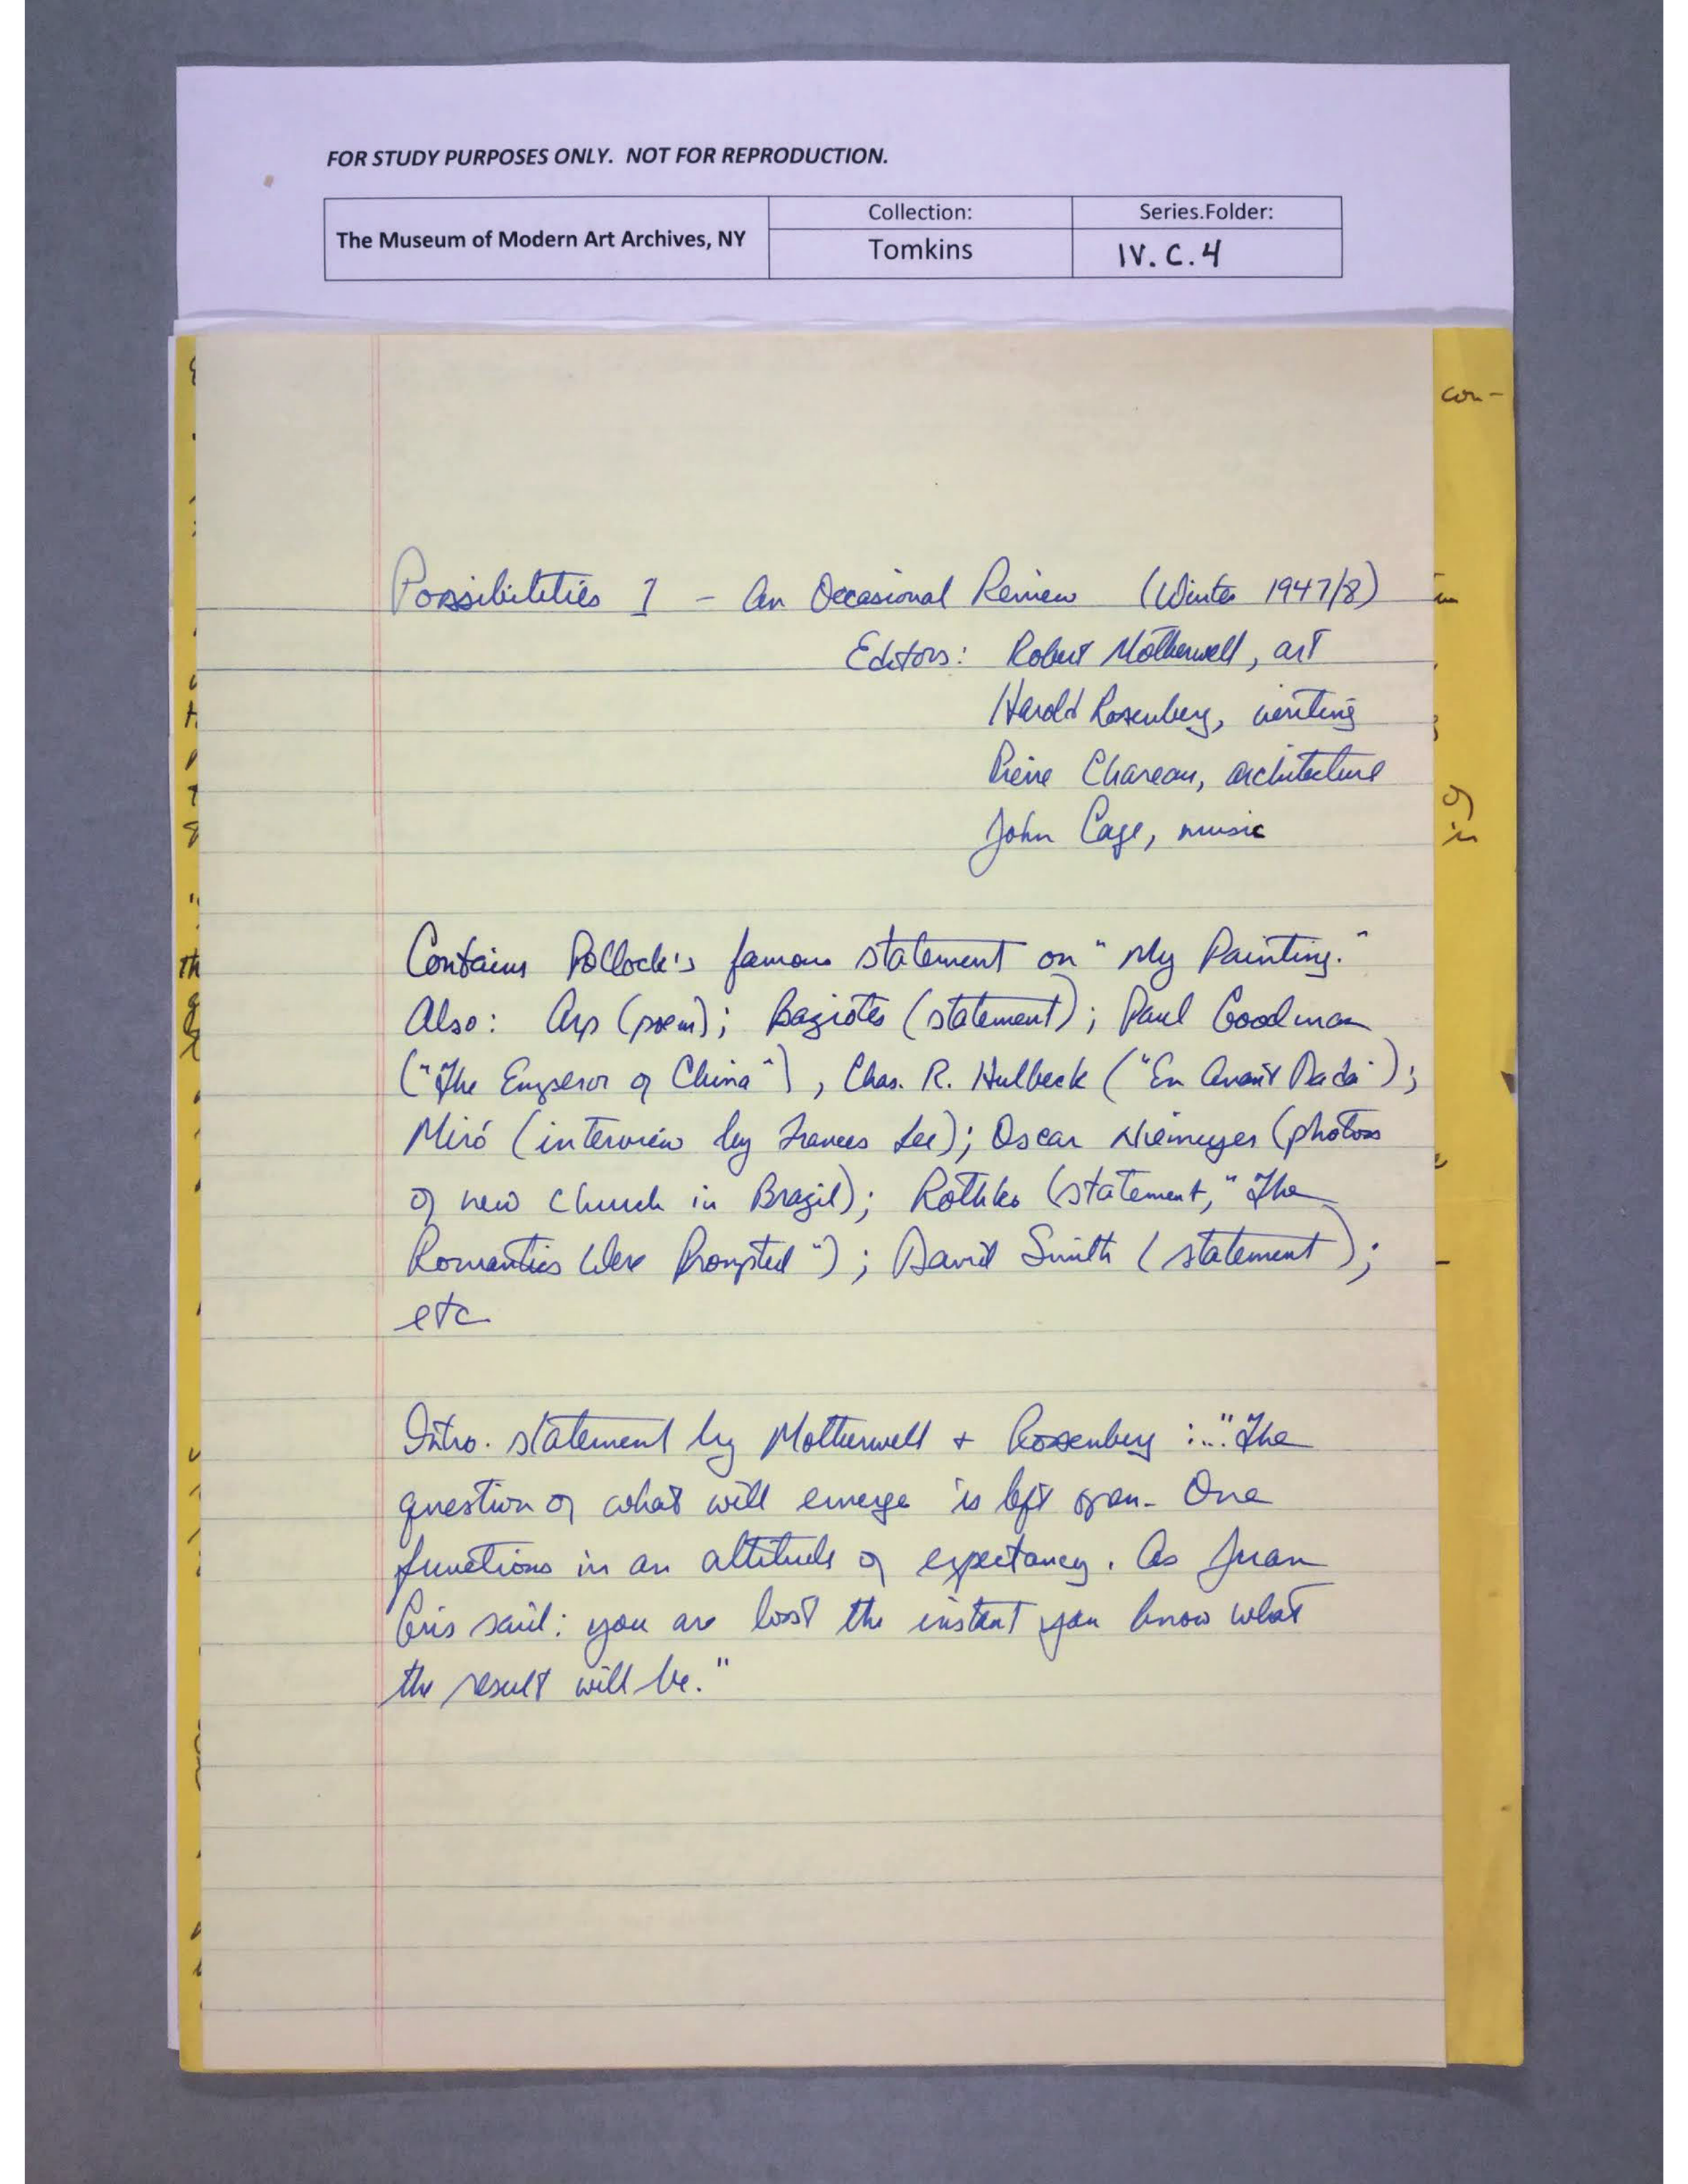 FOR STUDY PURPOSES ONLY. NOT FOR REPRODUCTION.
The Museum of Modern Art Archives, NY
Collection:
Series.Folder:
Tomkins
IV. C. 4
con-
Possibilities I - An Occasional Review (Winter 1947/8)
Editors: Robert Motherwell, art
Harold Rosenberg, writing
Pierre Chareau, architecture
John Cage, music
Contains Pollock's famous statement on "My Painting."
Also: Arp (poem); Baziotes (statement); Paul Goodman
("The Emperor of China"), Chas. R. Hulbeck ("En Avant Dada");
Miró (interview by Frances Lee); Oscar Niemeyer (photos
of new church in Brazil); Rothko (statement, "The
Romantics Were Prompted"); David Smith (statement);
etc
Intro. statement by Motherwell + Rosenberg: ..."The
question of what will emerge is left open. One
functions in an attitude of expectancy. As Juan
Gris said: you are lost the instant you know what
the result will be."